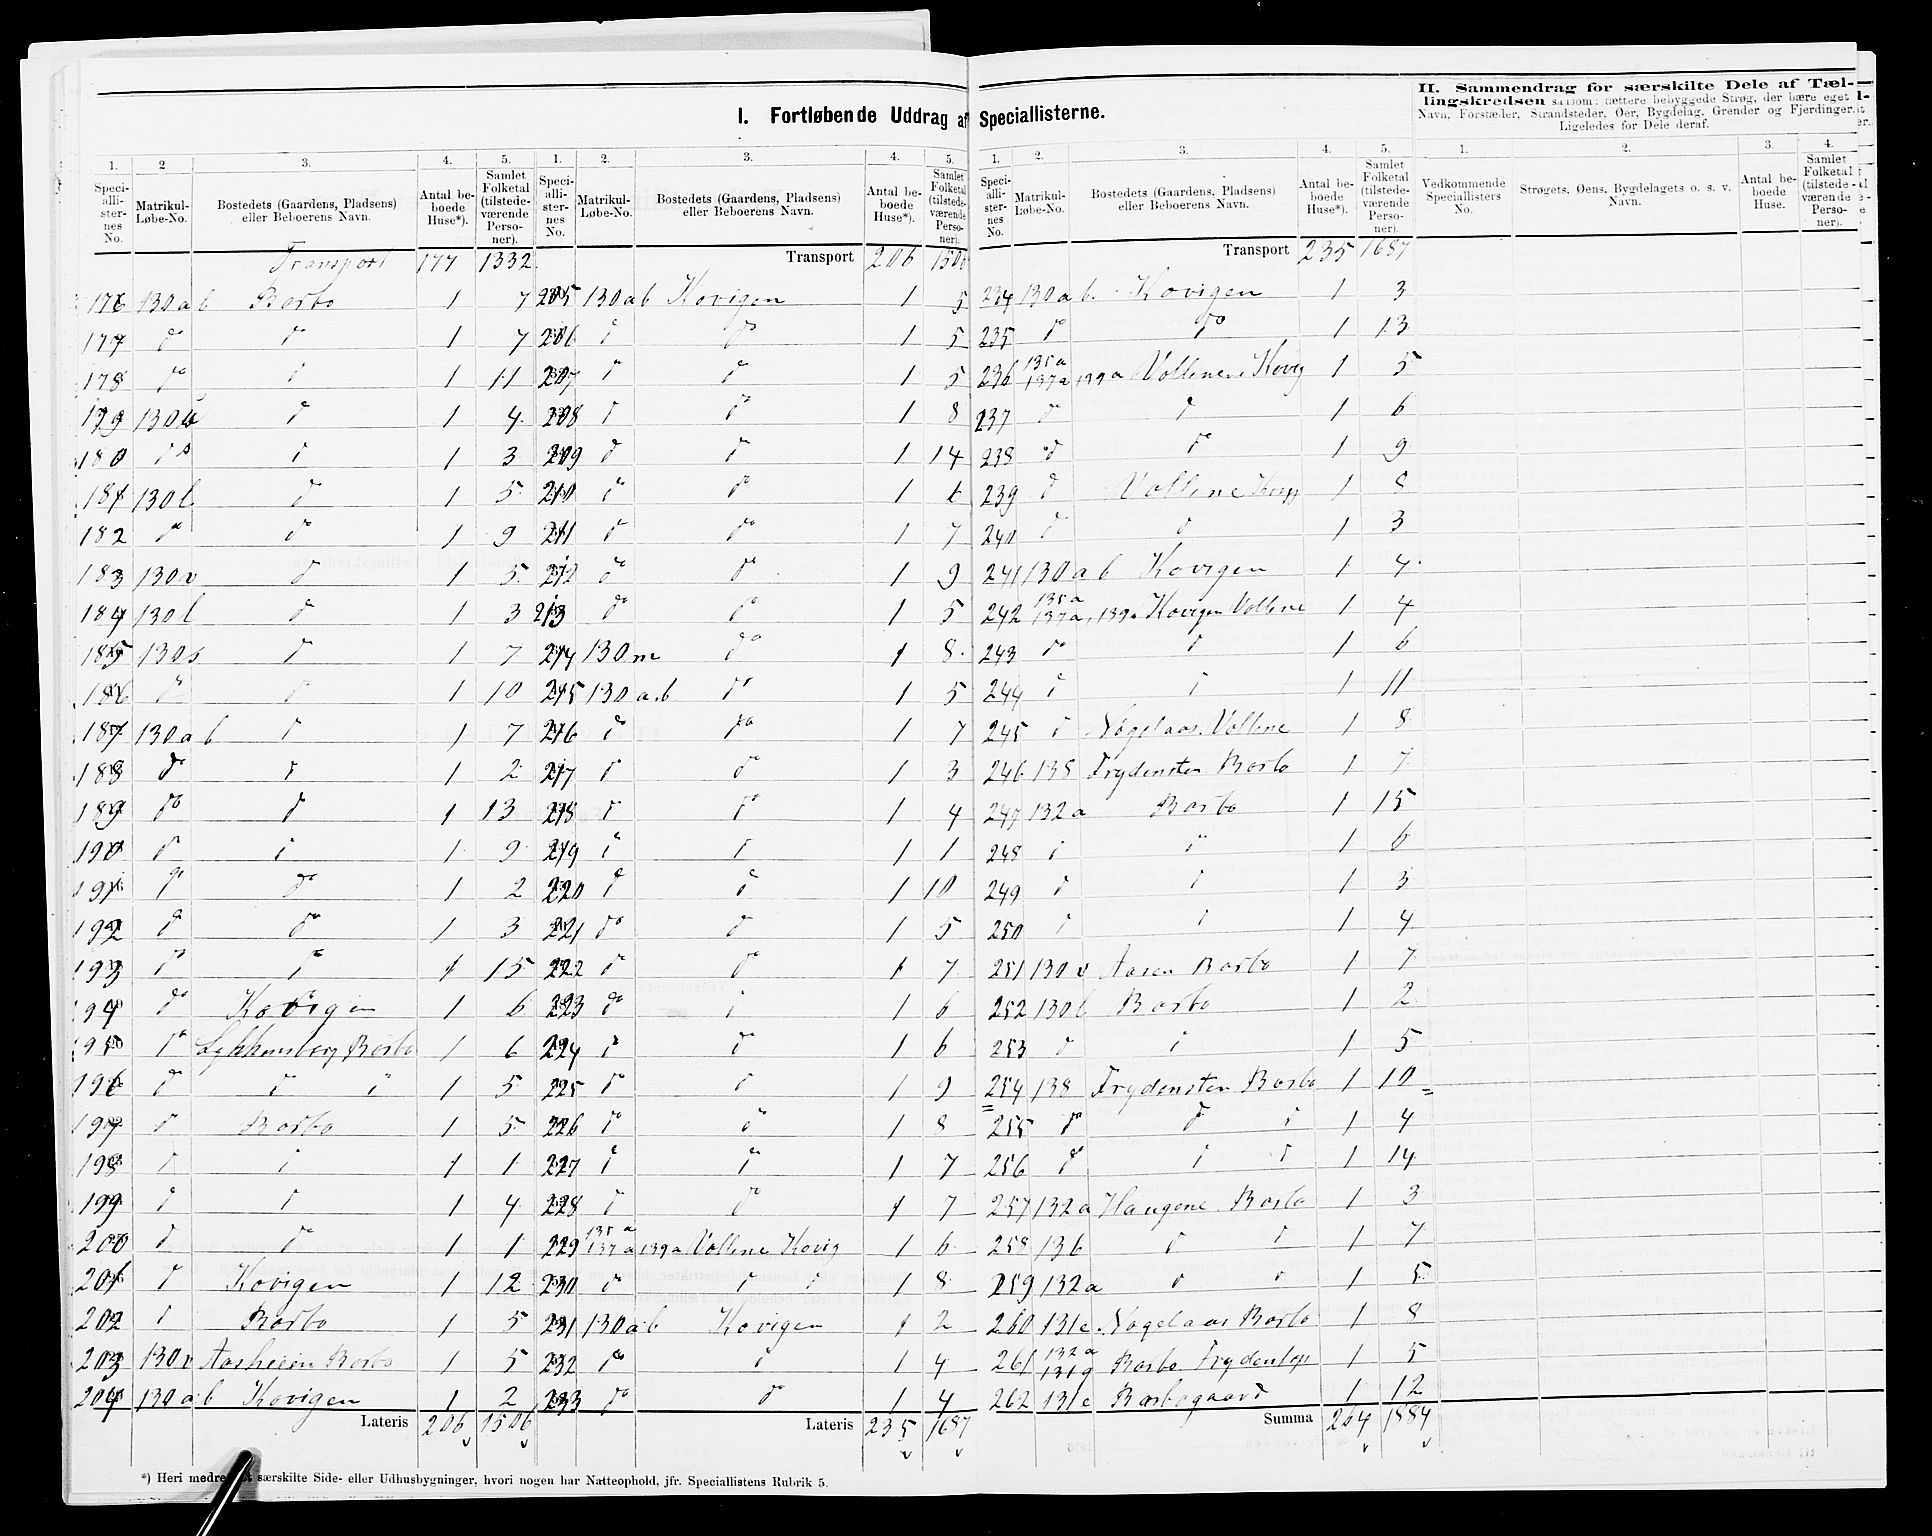 I. Fortløbende Uddrag af Speciallisterne.
II. Sammendrag for særskilte Dele af Tæl-
lingskredsen saasom: tættere bebyggede Strøg, der bære eget
Navn, Forstæder, Strandsteder, Øer, Bygdelag, Grender og Fjerdinger.
Ligeledes for Dele deraf.
1. 2 3. 4. 5. 1. 2. 3. 4. 5. 1. 2. 3. 4. 5. 1. 2. 3. 4.
Speci-alli-ster-nes No. Matrikul-Løbe-No. Bostedets (Gaardens, Pladsens) eller Beboerens Navn. Antal be-boede Huse*). Samlet Folketal (tilstede-værende Perso-ner).
Speci-alli-ster-nes No. Matrikul-Løbe-No. Bostedets (Gaardens, Pladsens) eller Beboerens Navn. Antal be-boede Huse*). Samlet Folketal (tilstede-værende Perso-ner).
Speci-alli-ster-nes No. Matrikul-Løbe-No. Bostedets (Gaardens, Pladsens) eller Beboerens Navn. Antal be-boede Huse*). Samlet Folketal (tilstede-værende Perso-ner).
Vedkommende Speciallisters No. Strøgets, Øens, Bygdelagets o. s. v. Navn. Antal be-boede Huse. Samlet Folketal (tilstede-værende Perso-ner).
Transport 177 1332
176 130ab Barbo 1 7
177 do do 1 7
178 do do 1 11
179 130 do 1 4
180 do do 1 3
181 130l do 1 5
182 do do 1 9
183 130v do 1 5
184 130l do 1 3
185 130s do 1 7
186 do do 1 10
187 130ab do 1 7
188 do do 1 2
189 do do 1 13
190 do do 1 9
191 do do 1 2
192 do do 1 3
193 do do 1 15
194 do Kovigen 1 6
195 do Barbo 1 6
196 do do do 1 5
197 do Barbo 1 5
198 do do 1 1
199 do do 1 4
200 do do 1 1
201 do Kovigen 1 12
202 do Barbo 1 5
203 130v Aasheien Barbo 1 5
204 130ab Kovigen 1 2
Lateris 206 1506
Transport 206 1506
205 130ab Kovigen 1 5
206 do do 1 5
207 do do 1 5
208 do do 1 8
209 do do 1 14
210 do do 1 6
211 do do 1 7
212 do do 1 9
213 do do 1 5
214 130m do 1 8
215 130a.b do 1 5
216 do do 1 7
217 do do 1 3
218 do do 1 4
219 do do 1 1
220 do do 1 10
221 do do 1 5
222 do do 1 7
223 do do 1 6
224 do do 1 6
225 do do 1 9
226 do do 1 8
227 do do 1 7
228 do do 1 7
229 135a 137a 139a Vollene Kovig 1 6
230 do do do 1 8
231 130ab Kovigen 1 2
232 do do 1 4
233 do do 1 4
Lateris 235 1687
Transport 235 1687
234 130ab. Kovigen 1 3
235 do do 1 13
236 135a 137a 139a Vollene Kovig 1 5
237 do do 1 6
238 do do 1 9
239 do Vollene 1 8
240 do do 1 3
241 130ab Kovigen 1 4
242 135a 137a, 139a Kovigen Vollene 1 4
243 do do 1 6
244 do do 1 11
245 do Nøgelaas. Vollene 1 8
246 138 Frydensten Barbo 1 7
247 132a Barbo 1 15
248 do do 1 6
249 do do 1 3
250 do do 1 4
251 130v Aasen Barbo 1 7
252 130l Barbo 1 2
253 do do 1 5
254 138 Frydensten Barbo 1 10
255 do do do 1 4
256 do do do 1 14
257 132a Haugene Barbo 1 3
258 136 do do 1 7
259 132a do do 1 5
260 131c Nøgelaas Barbo 1 8
261 132a 131g Barbo Frydentop 1 5
262 131c Barbogaard 1 12
Summa 264 1884
*) Heri særskilte Side- eller Udhusbygninger, hvori nogen har Natteophold, jfr. Speciallistens Rubrik 5.